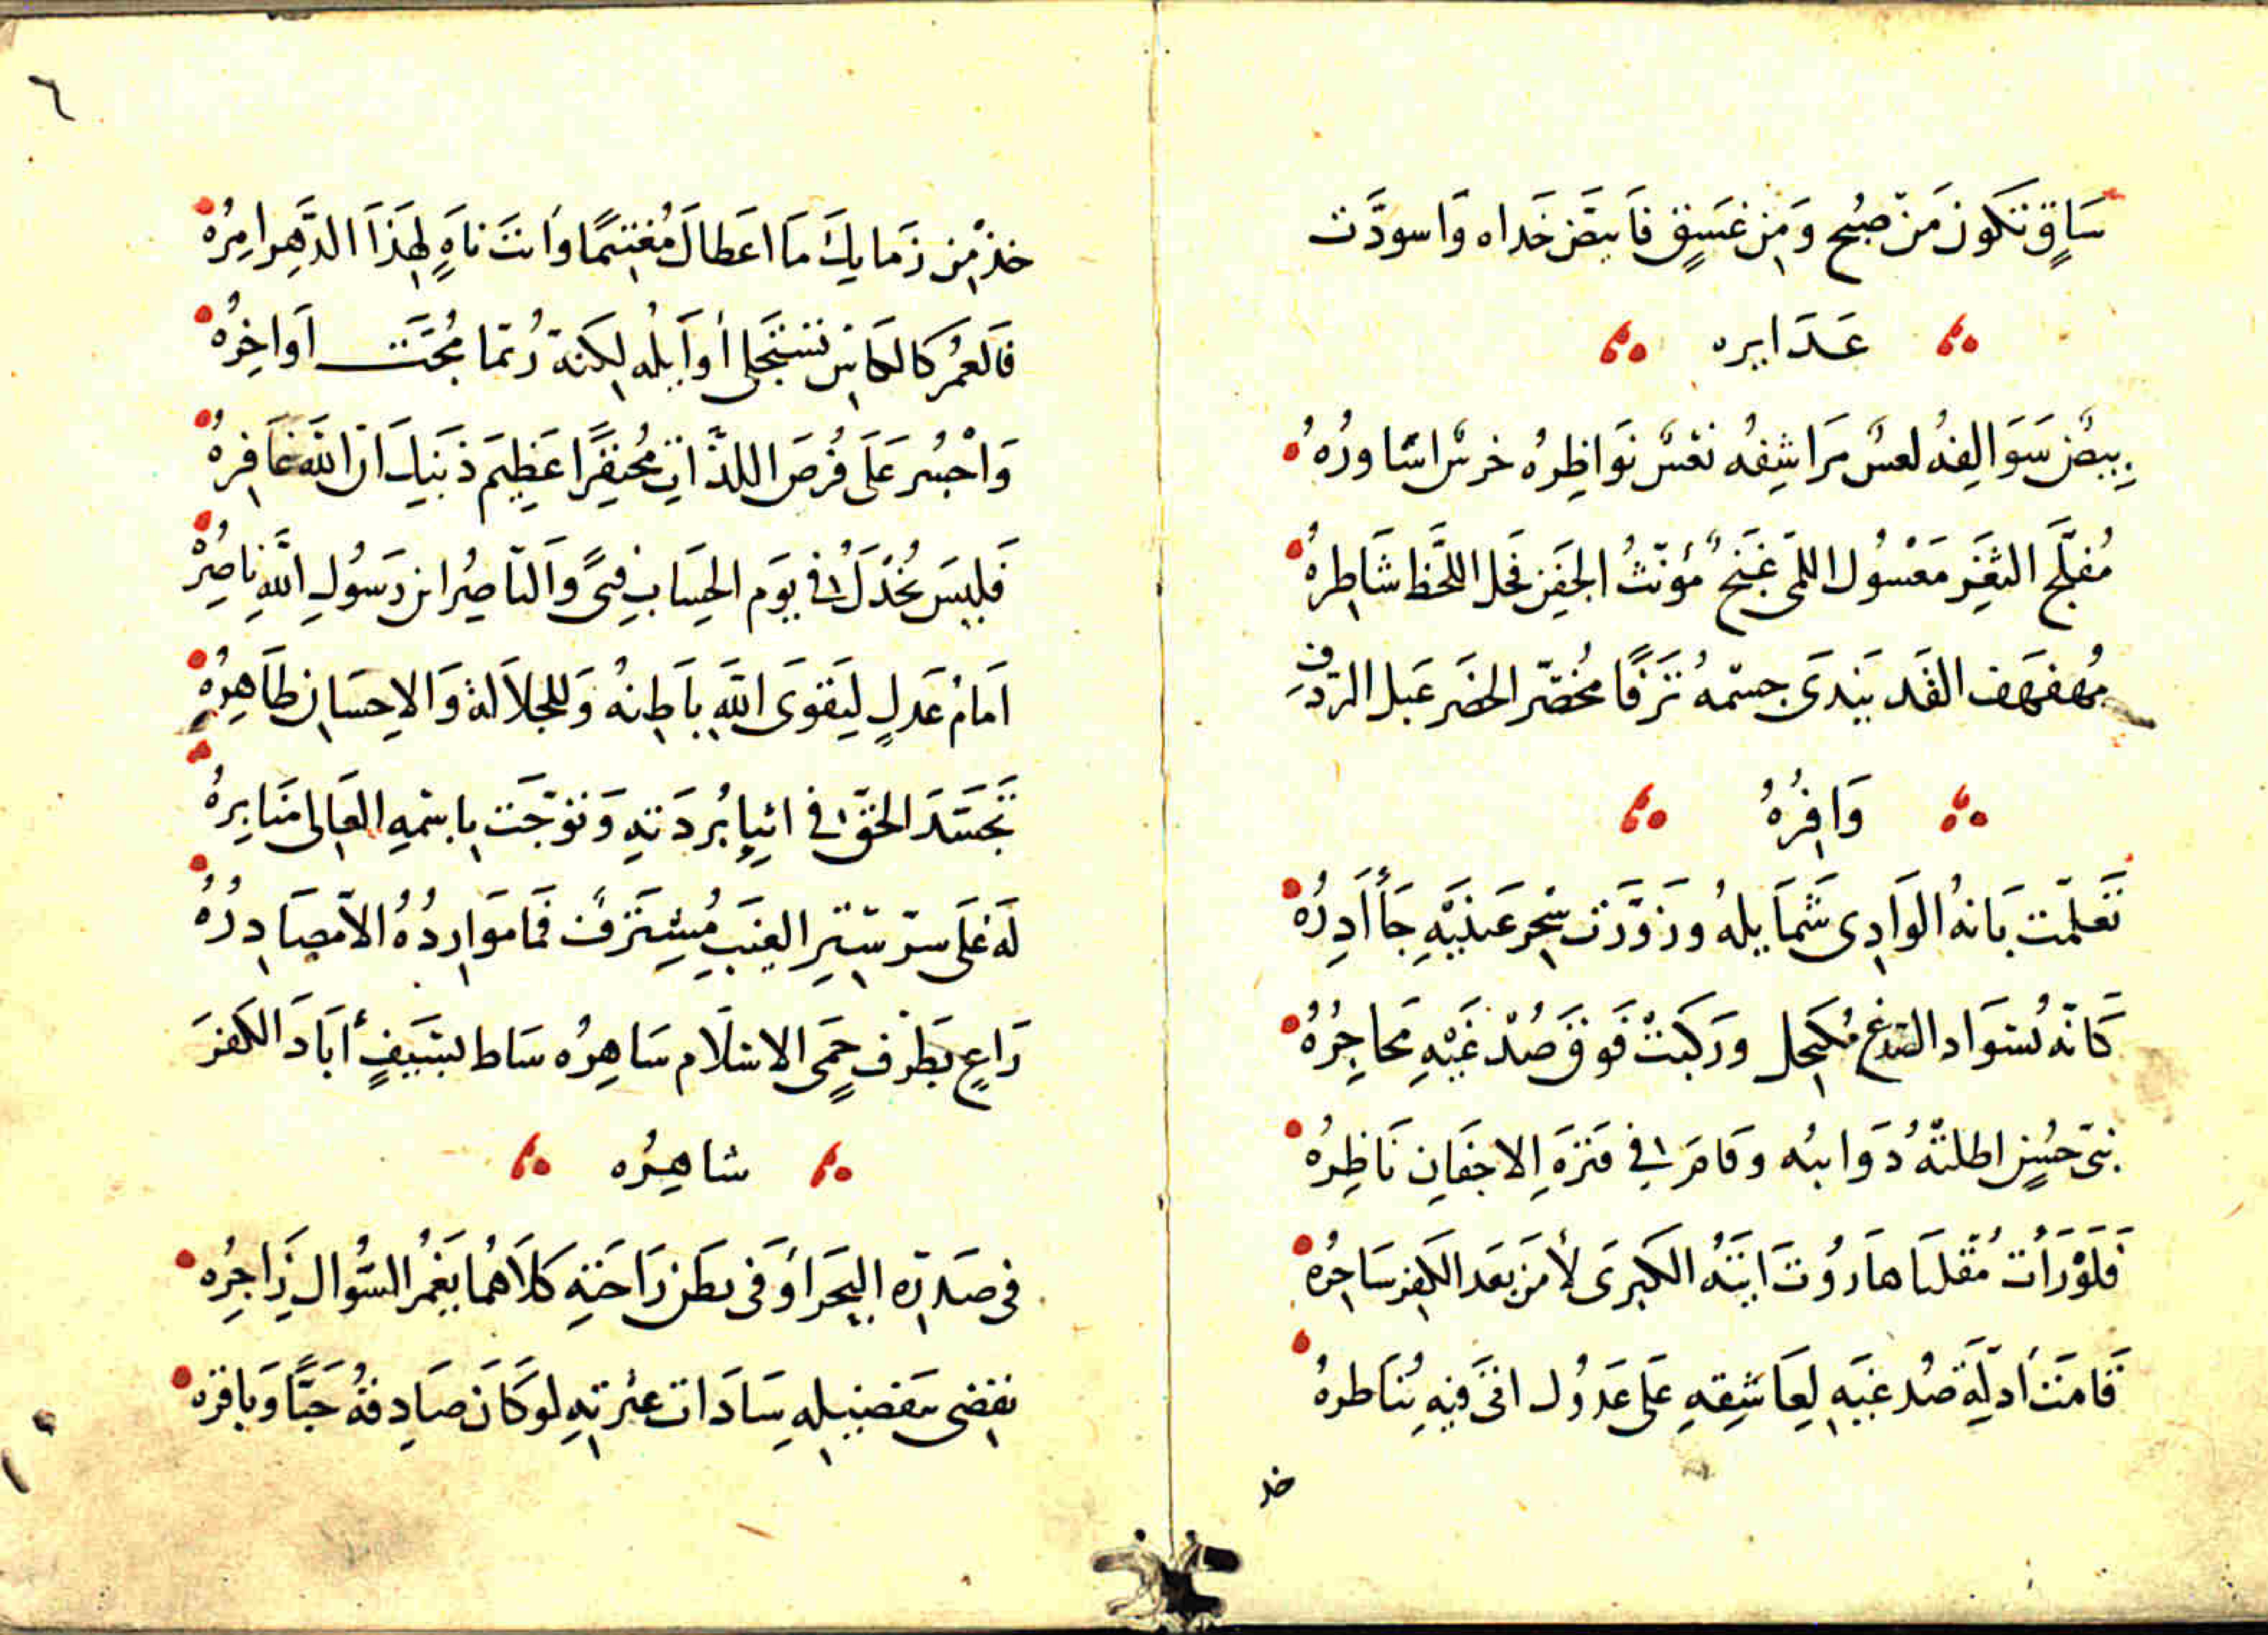 سَاقٍ تَكَونَ مَنْ صُبْحٍ وَمِنْ غَسَقٍ فَابيَضَ خَداه وَاسودَّت
غَدَايره
بِيضٌ سَوَالِفهُ لعسٌ مَرَاشِفهُ نعْسٌ نَوَاظِرهُ خرسٌ اسَاورُهُ
مُفلَّج الثَغَرِ مَعْسُول اللمَى غَنَجٌ مُؤنّثُ الجَفِنِ فَحل اللَّحَظ شَاطِرهُ
مُهفهَف القَد يَندَى جسمهُ تَرَفًا مخُصّر الخصَر عَبل الرّدفِ
وَافِرُهُ
تَعَلمّت بَانهُ الوَادِى شَمَايلهُ وزَوَّرَت سِحْرَ عَينَيْهِ جَاًادِرُهُ
كَانّه بُسَوَاد الصّدغ مُكتحِل ورَكبَتْ فَوقَ صُدْغَيْهِ مَحاجِرُهُ
نبىّ حُسْنٍ اظلتّهُ ذَوَايبُه وقَامَر فِي فَترَهِ الاجفَانِ نَاظِرُهُ
فَلَوْرَأَت مُقَلتَا هَارُوُتَ ايَتَهُ الكبرَى لأمَن بَعَد الكَفِر سَاحِرُهُ
قَامَتَ أدلّةَ صُدغَيَهِ لِعَاشِقهِ عَلى عَذُول اتىَ فيهِ يُنَاظرهُ
خذ
٦
خذْ مِن زَمَانِكَ مَا اعَطاكَ مُغتنِمًا وَانتَ نَاهٍ لِهَذَا الدَّهِر امِرُهُ
فَالعُمرَ كالكَاسِ تستَجلى أوَايلُه لكِنهَ رُبمّا مُجتَّ اوَاخِرُهُ
وَاجْسُر عَلَى فُرصَ اللذَّاتِ مُحتِقرًا عَظِيمَ ذَنبِكَ انّ اللهَ غَافِرهُ
فَليسَ يُخْذَلُ فى يوَم الحِسَاب فتىً وَالنّاصِرُ ابن رَسُولِ اللهِ نَاصِرُهْ
امَامُ عَدلٍ لِتَقوَى اللَّهِ بِاَطِنهُ وَللجَلالَة وَالاحِسَانِ ظَاهِرُهُ
تَجَسَّدَ الحَقّ فى اثنِا بُردَتهِ وَتتوّجَت بِاسْمِهِ العَالِى مَنَابِرهُ
لَه عَلَى سرّ سّتِرِ الغَيَبِ مُشتَرَفٌ فَمَا مَوَارِدُهُ الاّ مَصَادِرُهُ
رَاعٍ بَطَرْف حِمَى الاسَلَام سَاهِرُه سَاط بسَيَفٍ أبَادَ الكفرَ
شاهِرُه
فى صَدِرّه البَحَر أوَ فى بطَن رَاحَتهِ كلاَهُما يَغمُر السُّوالَ زَاجِرُه
تقضى بتَفضيلِهِ سَادَات عِتْرتِهِ لو كَانَ صَادِقهُ حَيًّا وَبَاقره